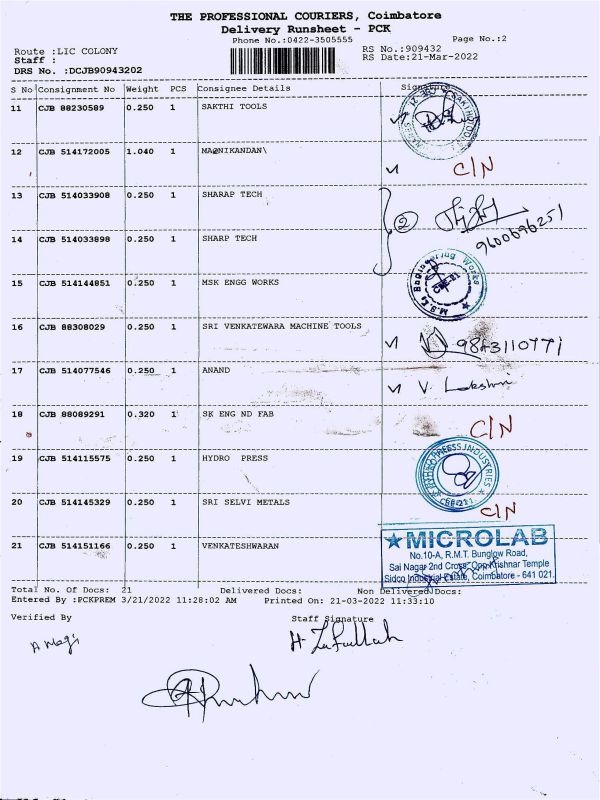 THE PROFESSIONAL COURIERS, Coimbatore
Delivery Runsheet - PCK
Phone No.:0422-3505555
Page No.:2
Route :LIC COLONY
RS No.:909432
Staff :
RS Date:21-Mar-2022
DRS No. :DCJB90943202
S No Consignment No Weight PCS Consignee Details Signature
11 CJB 88230589 0.250 1 SAKTHI TOOLS
12 CJB 514172005 1.040 1 MA@NIKANDAN\
C/N
13 CJB 514033908 0.250 1 SHARAP TECH
2
9600696251
14 CJB 514033898 0.250 1 SHARP TECH
15 CJB 514144851 0.250 1 MSK ENGG WORKS
Engineering Works
16 CJB 88308029 0.250 1 SRI VENKATEWARA MACHINE TOOLS
9843110771
17 CJB 514077546 0.250 1 ANAND
V. Lakshmi
18 CJB 88089291 0.320 1 SK ENG ND FAB
C/N
19 CJB 514115575 0.250 1 HYDRO PRESS
20 CJB 514145329 0.250 1 SRI SELVI METALS
C/N
21 CJB 514151166 0.250 1 VENKATESHWARAN
★ MICROLAB
No.10-A, R.M.T. Bunglow Road,
Sai Nagar 2nd Cross, Opp.Krishnar Temple
Sidco Industrial Estate, Coimbatore - 641 021.
Total No. Of Docs: 21 Delivered Docs: Non Delivered Docs:
Entered By :PCKPREM 3/21/2022 11:28:02 AM Printed On: 21-03-2022 11:33:10
Verified By Staff Signature